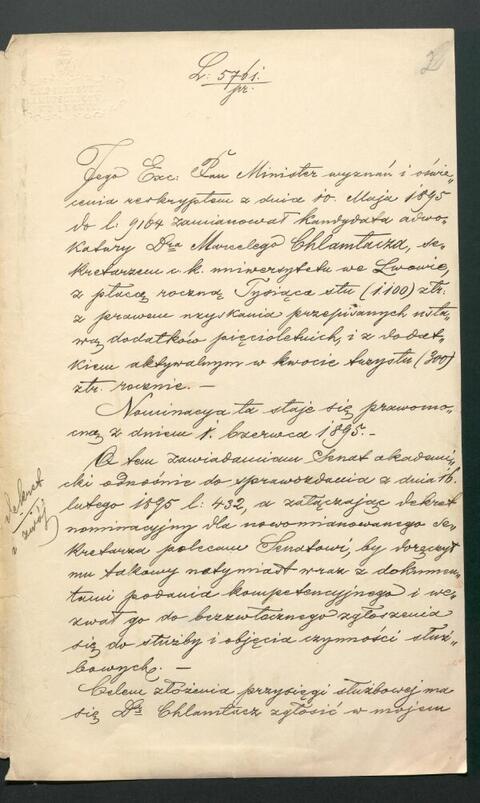 L: 5761.
pr.
2
Jego Exc: Pan Minister wyznań i oświe-
cenia reskryptem z dnia 10. Maja 1895
do l: 9164 zamianował kandydata adwo-
katury Dra Marcelego Chlamtacza, se-
kretarzem c. k. uniwersytetu we Lwowie,
z płacą roczną Tysiąca stu (1100) złr.
z prawem uzyskania przepisanych usta-
wą dodatków pięcioletnich, i z dodat-
kiem aktywalnym w kwocie trzystu (300)
złr. rocznie. —
Nominacyja ta staje się prawomo-
cną z dniem 1. Czerwca 1895. —
O tem zawiadamiam Senat akademi-
cki odnośnie do sprawozdania z dnia 16.
lutego 1895 l: 432, a załączając dekret
nominacyjny dla nowomianowanego se-
kretarza polecam Senatowi, by doręczył
mu takowy natychmiast wraz z dokumen-
tami podania kompetencyjnego i we-
zwał go do bezzwłocznego zgłoszenia
się do służby i objęcia czynności służ-
bowych. —
Celem złożenia przysięgi służbowej ma
się Dr Chlamtacz zgłosić w mojem
dekret